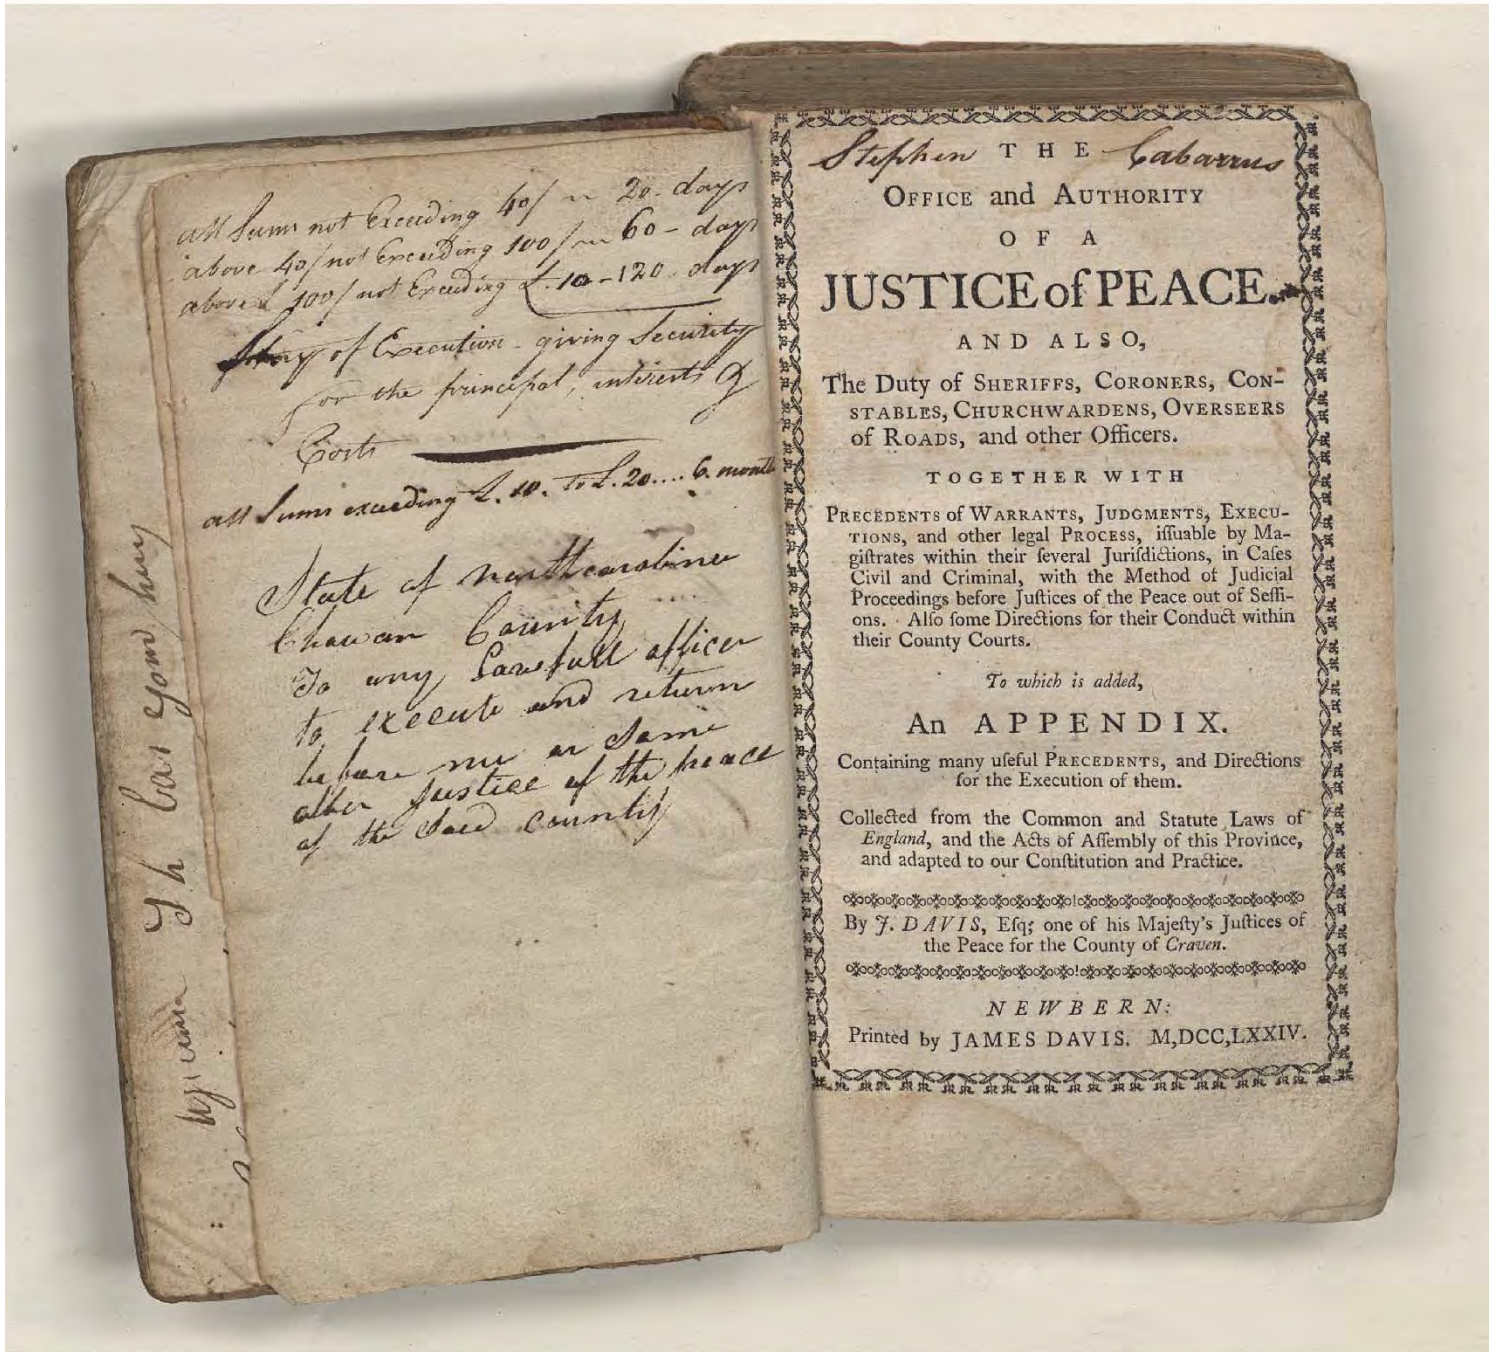 all Sums not Exceeding 40/ 20 - days
above 40/ not Exceeding 100/ 60 - days
above £ 100/ not Exceeding £. 10 - 120 days
Stay of Execution - giving Security
for the principal, interests &
Costs
all Sums exceeding £. 10. to £. 20.... 6. month
State of northcarolina
Chowan County
To any Lawfull officer
to execute and return
before me or Some
other justice of the peace
of the Said county
Stephen THE Cabarrus
OFFICE and AUTHORITY
OF A
JUSTICE of PEACE.
AND ALSO,
The Duty of SHERIFFS, CORONERS, CON-
STABLES, CHURCHWARDENS, OVERSEERS
of ROADS, and other Officers.
TOGETHER WITH
PRECEDENTS of WARRANTS, JUDGMENTS, EXECU-
TIONS, and other legal PROCESS, iſſuable by Ma-
giſtrates within their ſeveral Juriſdictions, in Caſes
Civil and Criminal, with the Method of Judicial
Proceedings before Juſtices of the Peace out of Seſſi-
ons. Alſo ſome Directions for their Conduct within
their County Courts.
To which is added,
An APPENDIX.
Containing many uſeful PRECEDENTS, and Directions
for the Execution of them.
Collected from the Common and Statute Laws of
England, and the Acts of Aſſembly of this Province,
and adapted to our Conſtitution and Practice.
By J. DAVIS, Eſq; one of his Majeſty's Juſtices of
the Peace for the County of Craven.
NEWBERN:
Printed by JAMES DAVIS. M,DCC,LXXIV.